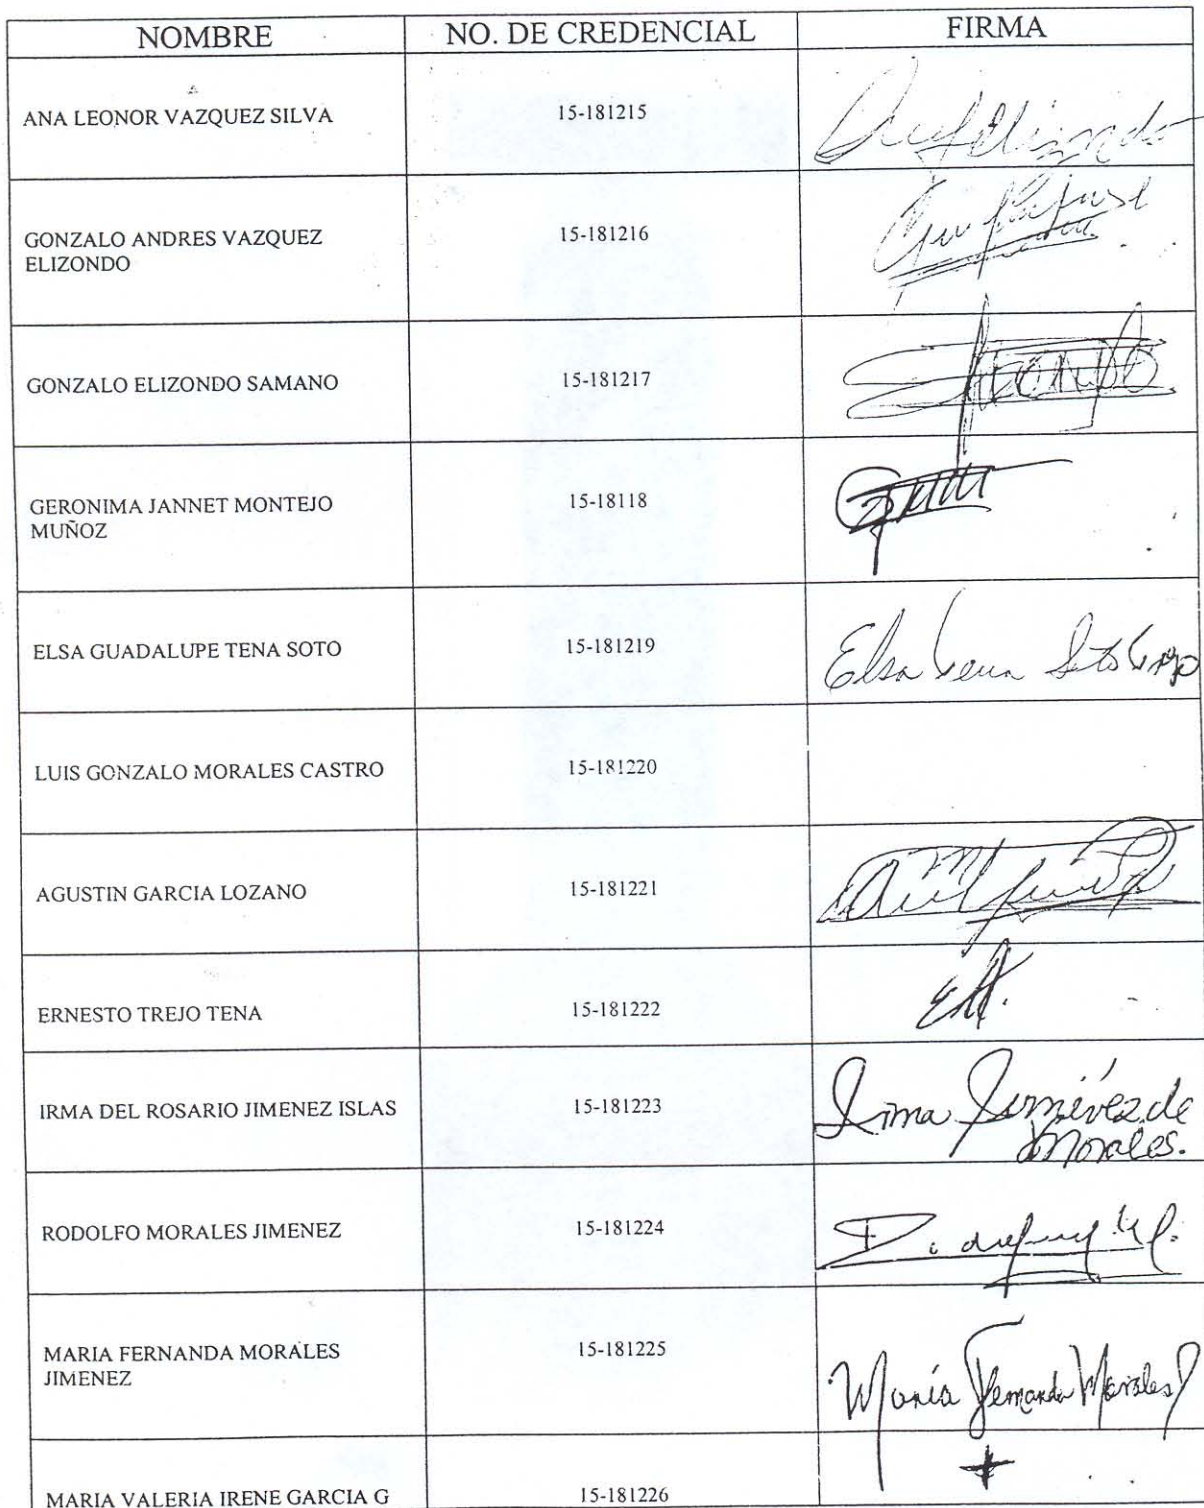 NOMBRE NO. DE CREDENCIAL FIRMA
ANA LEONOR VAZQUEZ SILVA 15-181215
GONZALO ANDRES VAZQUEZ 15-181216
ELIZONDO
GONZALO ELIZONDO SAMANO 15-181217
GERONIMA JANNET MONTEJO 15-18118
MUÑOZ
ELSA GUADALUPE TENA SOTO 15-181219 Elsa Tena Soto
LUIS GONZALO MORALES CASTRO 15-181220
AGUSTIN GARCIA LOZANO 15-181221
ERNESTO TREJO TENA 15-181222
IRMA DEL ROSARIO JIMENEZ ISLAS 15-181223 Irma Jiménez de
Morales.
RODOLFO MORALES JIMENEZ 15-181224
MARIA FERNANDA MORALES 15-181225 María Fernanda Morales J
JIMENEZ
MARIA VALERIA IRENE GARCIA G 15-181226